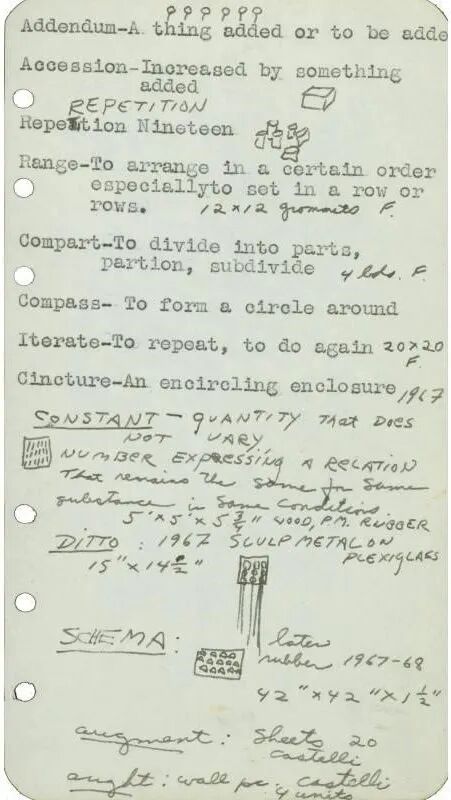 Addendum-A thing added or to be adde
Accession-Increased by something
added
REPETITION
Repetion Nineteen
Range-To arrange in a certain order
especiallyto set in a row or
rows. 12 x 12 grommits F.
Compart-To divide into parts,
partion, subdivide 4 lbs. F.
Compass- To form a circle around
Iterate-To repeat, to do again 20 x 20
F.
Cincture-An encircling enclosure 1967
CONSTANT - QUANTITY THAT DOES
NOT VARY
NUMBER EXPRESSING A RELATION
That remains the same for same
substance in same conditions.
5' x 5' x 5 3/4" WOOD, P.M. RUBBER
DITTO : 1967 SCULP METAL ON
PLEXIGLASS
15" x 14 1/2"
SCHEMA: later
rubber 1967-68
42" x 42" x 1 1/2"
augment: Sheets 20
castelli
aught: wall pc. castelli
4 units